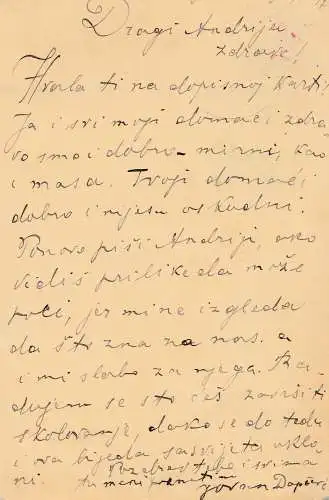 Dragi Andrija
zdravo!
Hvala ti na dopisnoj karti,
Ja i svi moji domaći zdra
vo smo i dobro - mirni, kao
i masa. Tvoji domaći
dobro i nijesu oskudni.
Ponovo piši Andriji, ako
vidiš prilike da može
poći, jer mi ne izgleda
da što zna za nas. a
i mi slabo za njega. Ra
dujem se što ćeš završiti
školovanje, dako se do tada
i va bijeda sa svijeta uklo
ni. Pozdrav tebi i svima
tu meni
Jovan